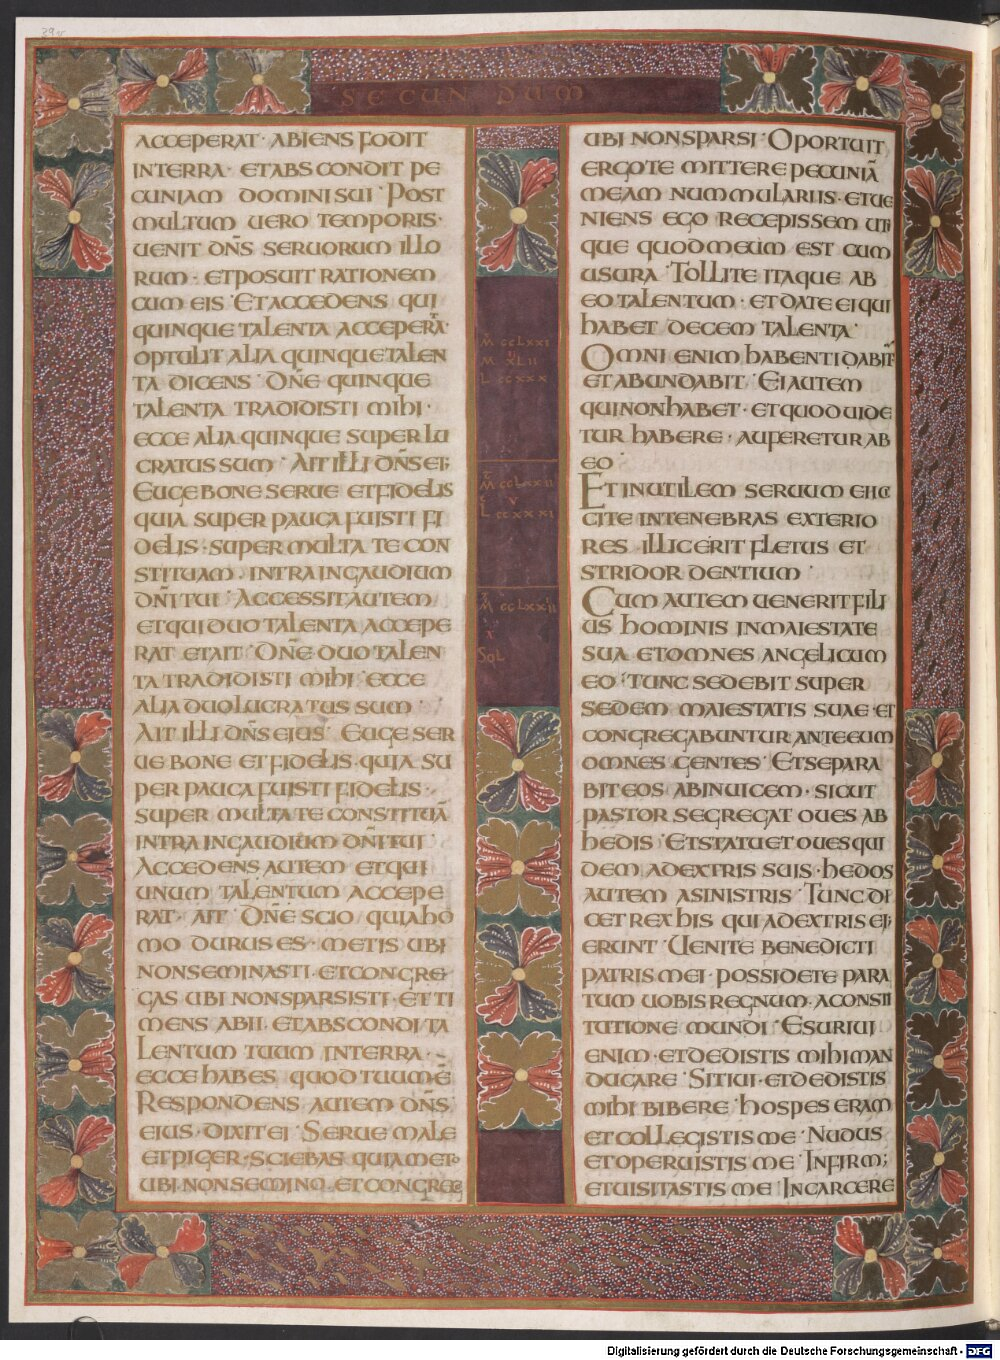 39v
SECUNDUM
ACCEPERAT · ABIENS FODIT
IN TERRA · ET ABSCONDIT PE
CUNIAM DOMINI SUI · POST
MULTUM UERO TEMPORIS ·
UENIT DÑS SERUORUM ILLO
RUM · ET POSUIT RATIONEM
CUM EIS · ET ACCEDENS QUI
QUINQUE TALENTA ACCEPERAT ·
OPTULIT ALIA QUINQUE TALEN
TA DICENS · DÑE QUINQUE
TALENTA TRADIDISTI MIHI ·
ECCE ALIA QUINQUE SUPER LU
CRATUS SUM · AIT ILLI DÑS EI;
EUGE BONE SERUE ET FIDELIS
QUIA SUPER PAUCA FUISTI FI
DELIS · SUPER MULTA TE CON
STITUAM · INTRA IN GAUDIUM
DÑI TUI · ACCESSIT AUTEM
ET QUI DUO TALENTA ACCEPE
RAT ET AIT · DÑE DUO TALEN
TA TRADIDISTI MIHI · ECCE
ALIA DUO LUCRATUS SUM ·
AIT ILLI DÑS EIUS · EUGE SER
UE BONE ET FIDELIS · QUIA SU
PER PAUCA FUISTI FIDELIS ·
SUPER MULTA TE CONSTITUĀ
INTRA IN GAUDIUM DÑI TUI ·
ACCEDENS AUTEM ET QUI
UNUM TALENTUM ACCEPE
RAT · AIT · DÑE SCIO QUIA HO
MO DURUS ES · METIS UBI
NON SEMINASTI · ET CONGRE
GAS UBI NON SPARSISTI · ET TI
MENS ABII · ET ABSCONDI TA
LENTUM TUUM IN TERRA ·
ECCE HABES QUOD TUUM Ē
RESPONDENS AUTEM DÑS
EIUS · DIXIT EI · SERUE MALE
ET PIGER · SCIEBAS QUIA METO
UBI NON SEMINO · ET CONGREGO
M̄ CCLXXI
M XLII
L CCXXX
M̄ CCLXXII
V
L CCXXXI
M̄ CCLXXII
X
SOL
UBI NON SPARSI · OPORTUIT
ERGO TE MITTERE PECUNIĀ
MEAM NUMMULARIIS · ET UE
NIENS EGO RECEPISSEM UTI
QUE QUOD MEUM EST CUM
USURA · TOLLITE ITAQUE AB
EO TALENTUM · ET DATE EI QUI
HABET DECEM TALENTA ·
OMNI ENIM HABENTI DABIT̄
ET ABUNDABIT · EI AUTEM
QUI NON HABET · ET QUOD UIDE
TUR HABERE · AUFERETUR AB
EO ·
ET INUTILEM SERUUM EIICI
CITE IN TENEBRAS EXTERIO
RES · ILLIC ERIT FLETUS ET
STRIDOR DENTIUM ·
CUM AUTEM UENERIT FILI
US HOMINIS IN MAIESTATE
SUA · ET OMNES ANGELI CUM
EO · TUNC SEDEBIT SUPER
SEDEM MAIESTATIS SUAE · ET
CONGREGABUNTUR ANTE EUM
OMNES GENTES · ET SEPARA
BIT EOS AB INUICEM · SICUT
PASTOR SEGREGAT OUES AB
HEDIS · ET STATUET OUES QUI
DEM A DEXTRIS SUIS · HEDOS
AUTEM A SINISTRIS · TUNC DI
CET REX HIS QUI A DEXTRIS EI;
ERUNT · UENITE BENEDICTI
PATRIS MEI · POSSIDETE PARA
TUM UOBIS REGNUM · A CONSTI
TUTIONE MUNDI · ESURIUI
ENIM · ET DEDISTIS MIHI MAN
DUCARE · SITIUI · ET DEDISTIS
MIHI BIBERE · HOSPES ERAM
ET COLLEGISTIS ME · NUDUS
ET OPERUISTIS ME · INFIRM;
ET UISITASTIS ME · IN CARCERE
Digitalisierung gefördert durch die Deutsche Forschungsgemeinschaft - DFG